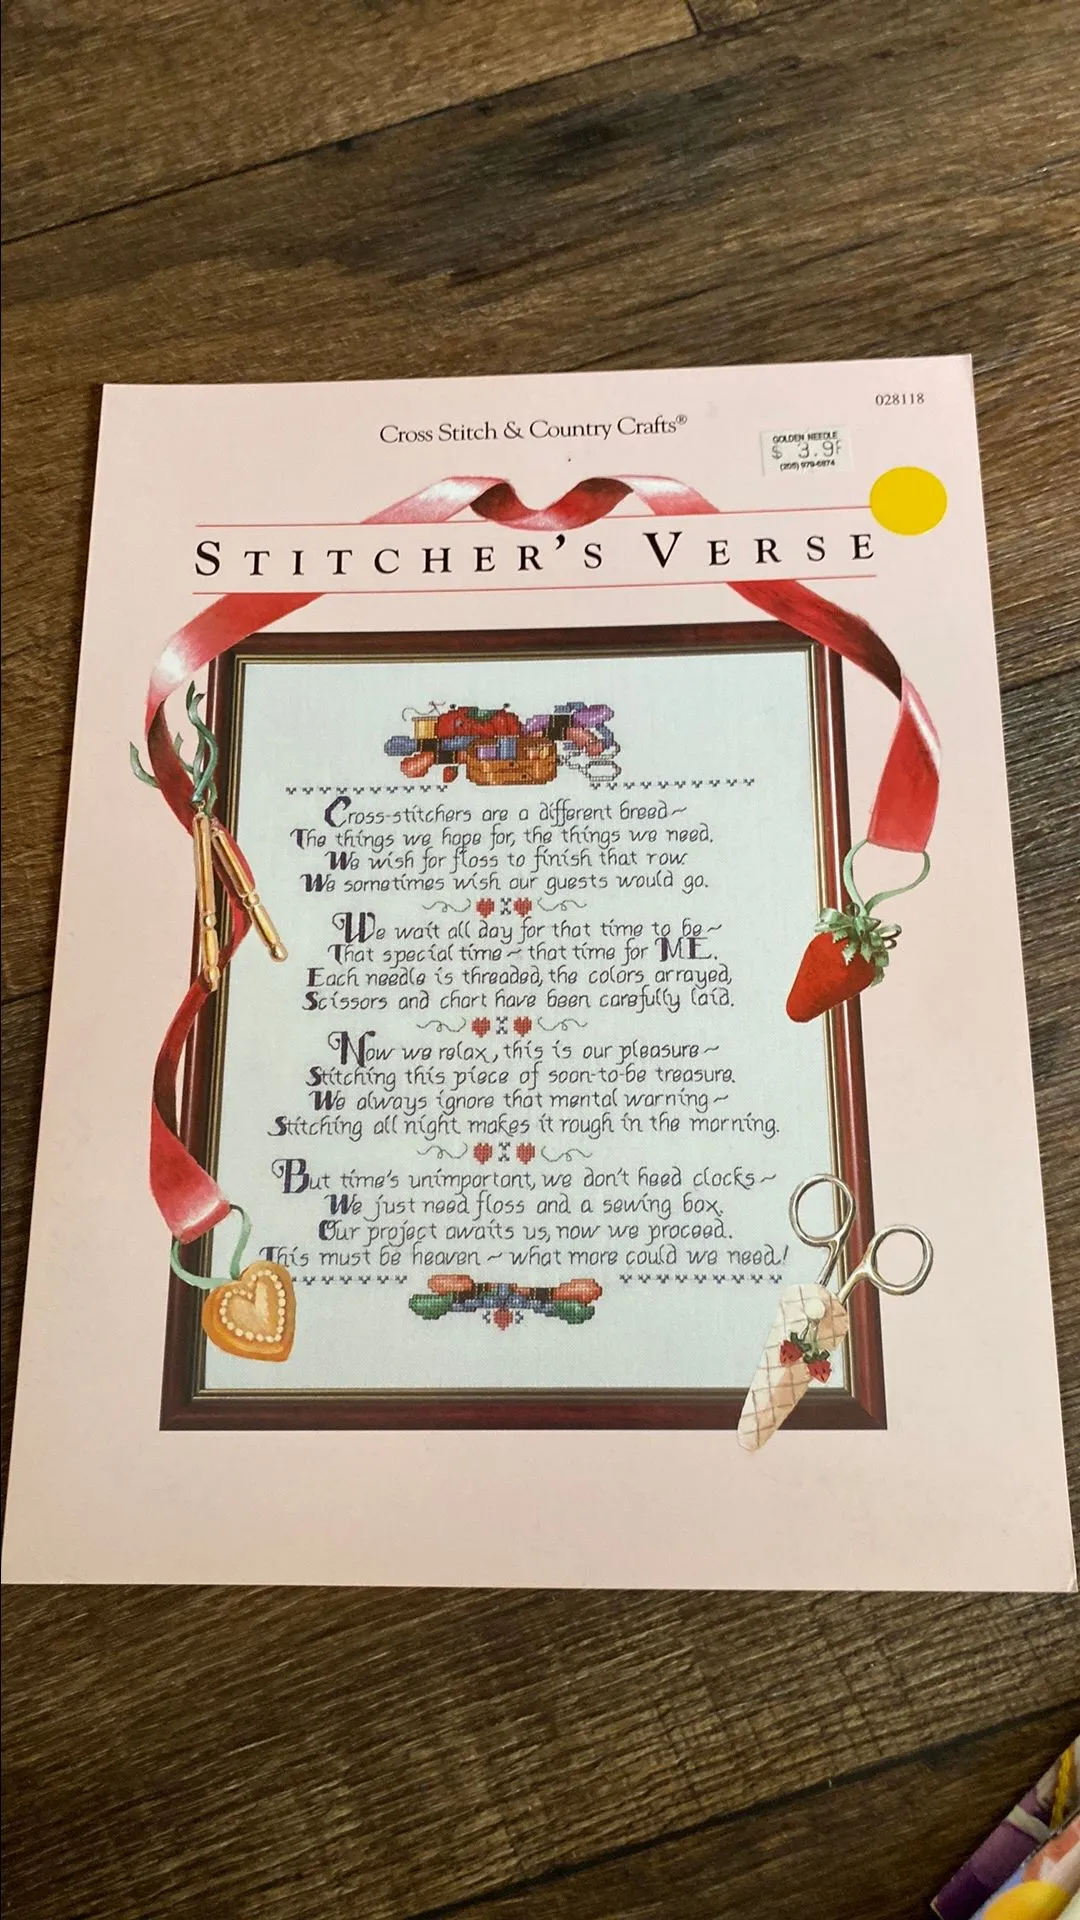 028118
Cross Stitch & Country Crafts®
GOLDEN NEEDLE
$ 3.9
(205) 979-6874
STITCHER'S VERSE
Cross-stitchers are a different breed~
The things we hope for, the things we need.
We wish for floss to finish that row.
We sometimes wish our guests would go.
We wait all day for that time to be~
That special time~that time for ME.
Each needle is threaded, the colors arrayed,
Scissors and chart have been carefully laid.
Now we relax, this is our pleasure~
Stitching this piece of soon-to-be treasure.
We always ignore that mental warning~
Stitching all night makes it rough in the morning.
But time's unimportant, we don't heed clocks~
We just need floss and a sewing box.
Our project awaits us, now we proceed.
This must be heaven~what more could we need!